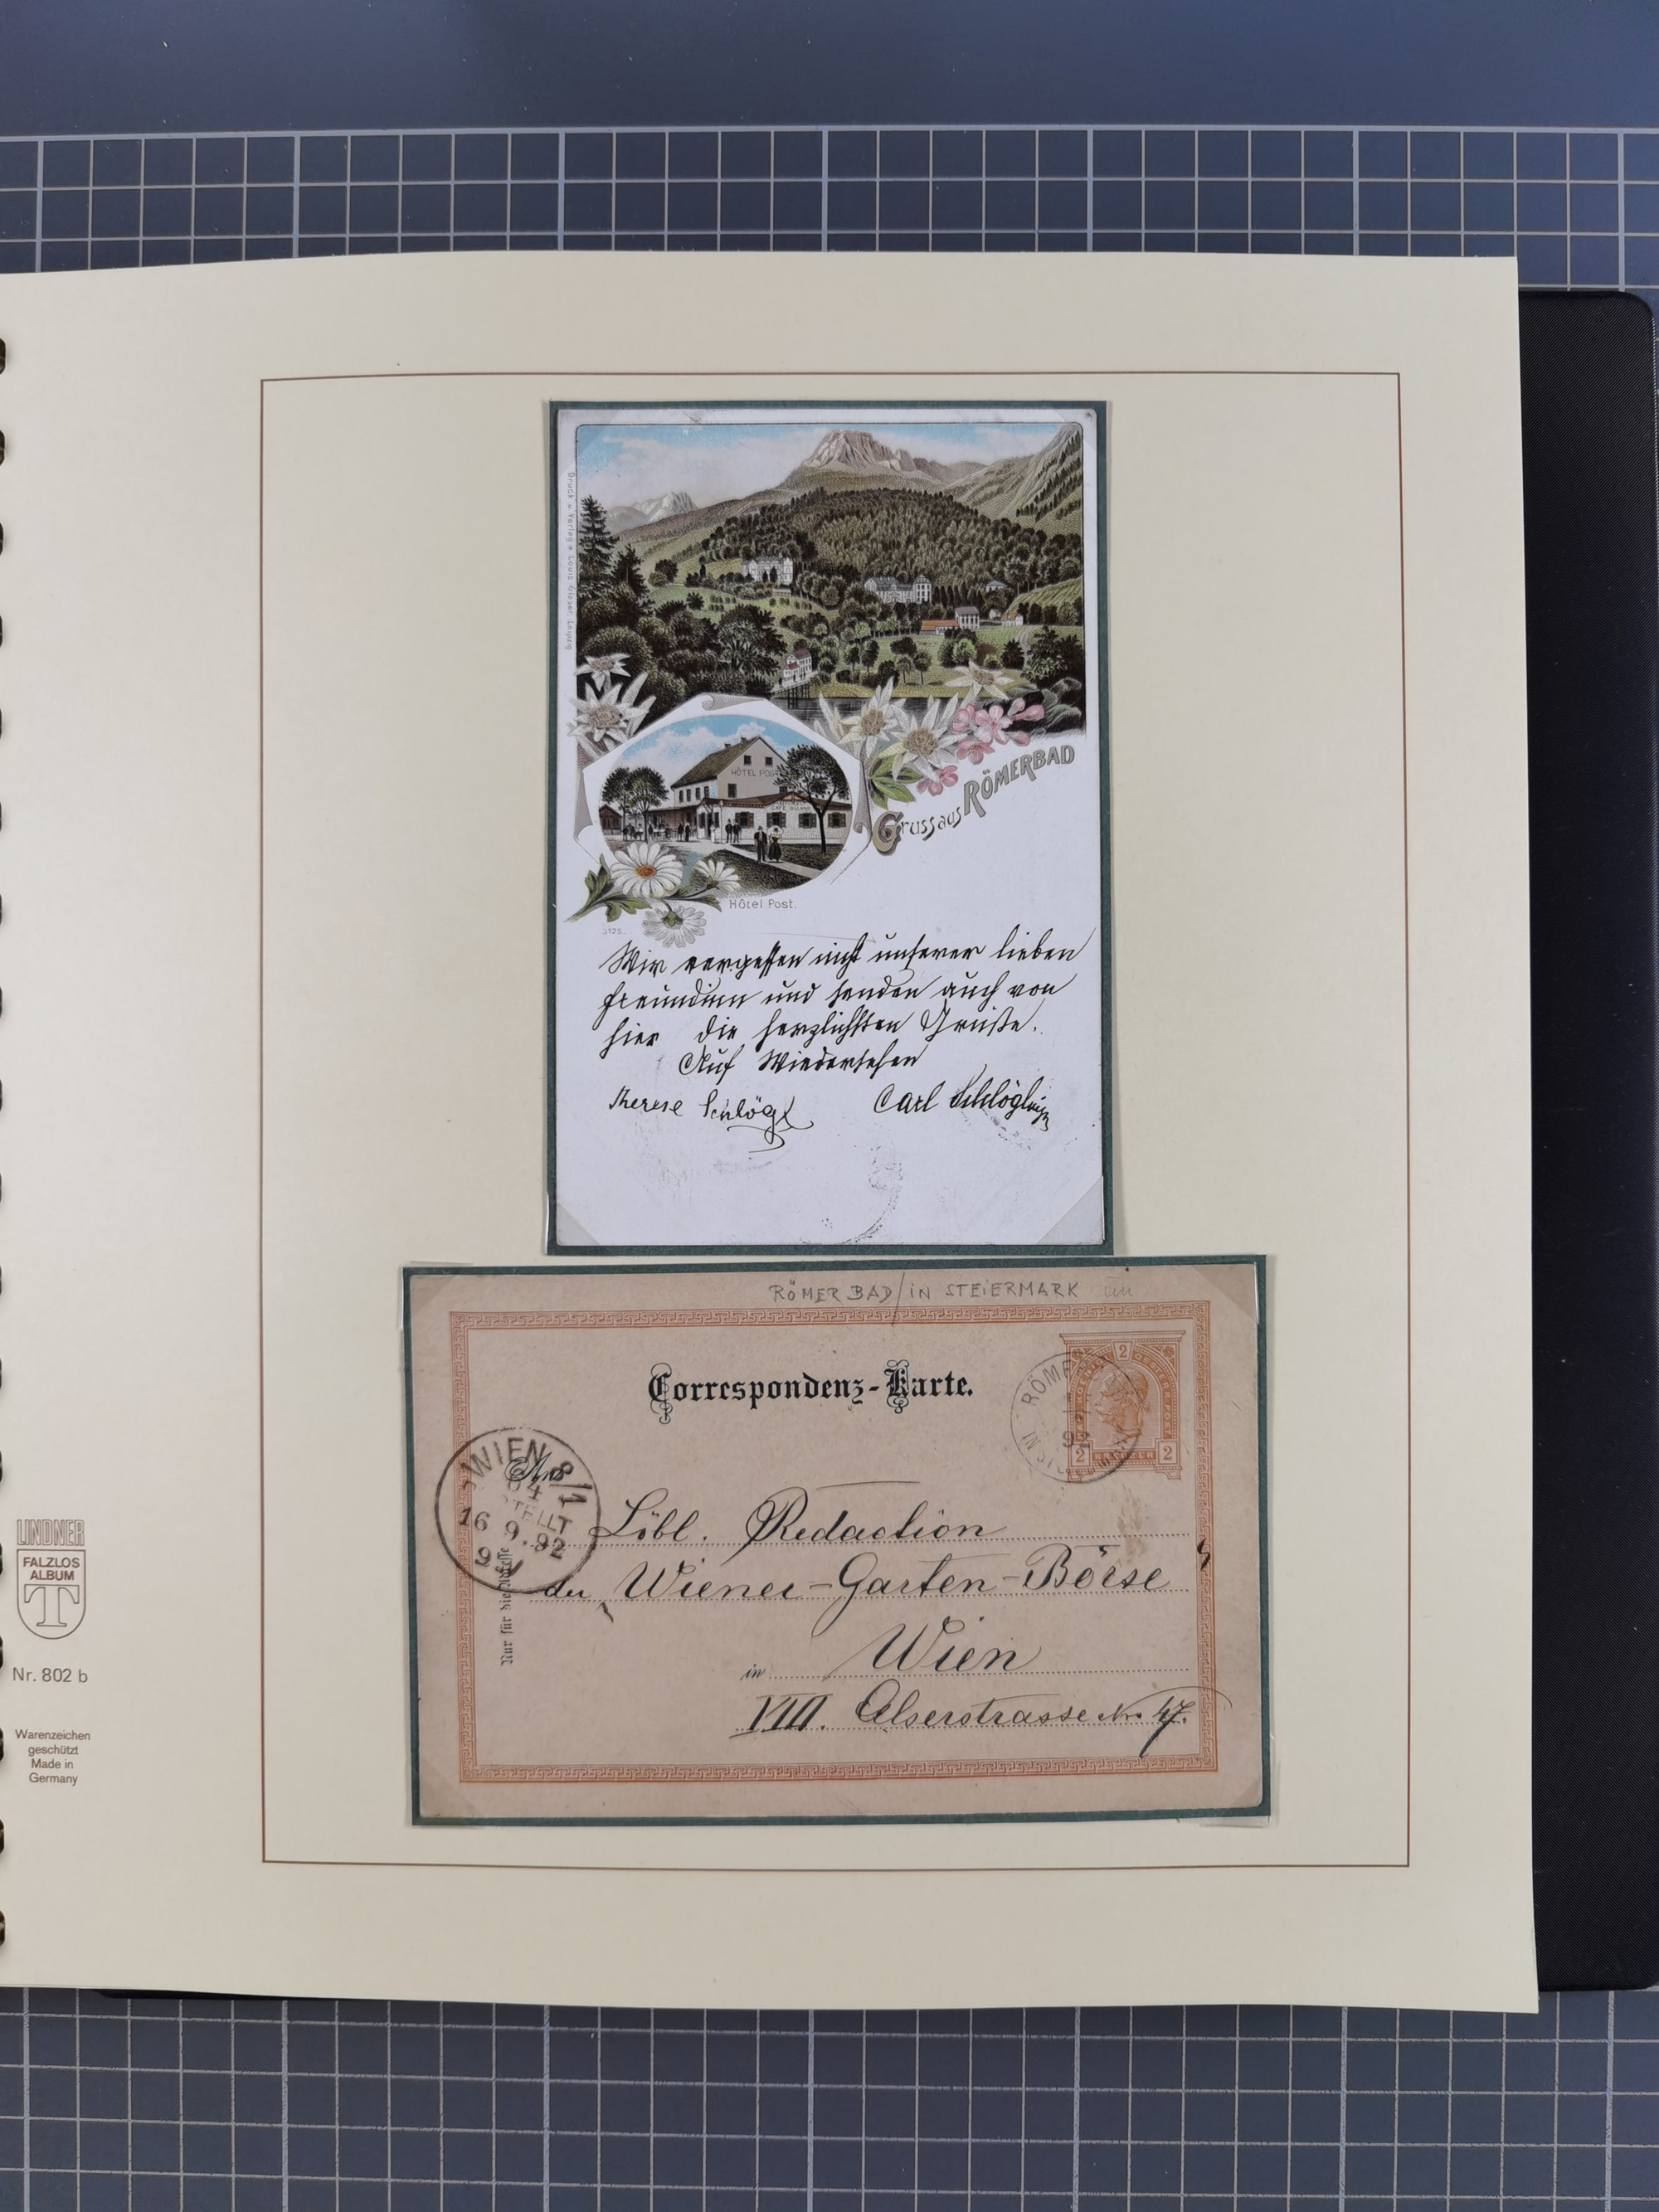 Druck u. Verlag v. Louis Glaser, Leipzig
HÔTEL POST
Gruss aus RÖMERBAD
Hôtel Post.
3175.
Wir vergessen nicht unserer lieben
Freundinn und senden auch von
hier die herzlichsten Grüße.
Auf Wiedersehen
Therese Schlögl Carl Schlögl
RÖMER BAD/IN STEIERMARK
Correspondenz-Karte.
2
2 KREUZER 2
RÖME
92
WIEN 8/1
STELLT
16 9. 92
9
An
Löbl. Redaction
der Wiener-Garten-Börse
in Wien
VIII. Alserstrasse No. 47.
Nur für die Adresse
LINDNER
FALZLOS
ALBUM
T
Nr. 802 b
Warenzeichen
geschützt
Made in
Germany